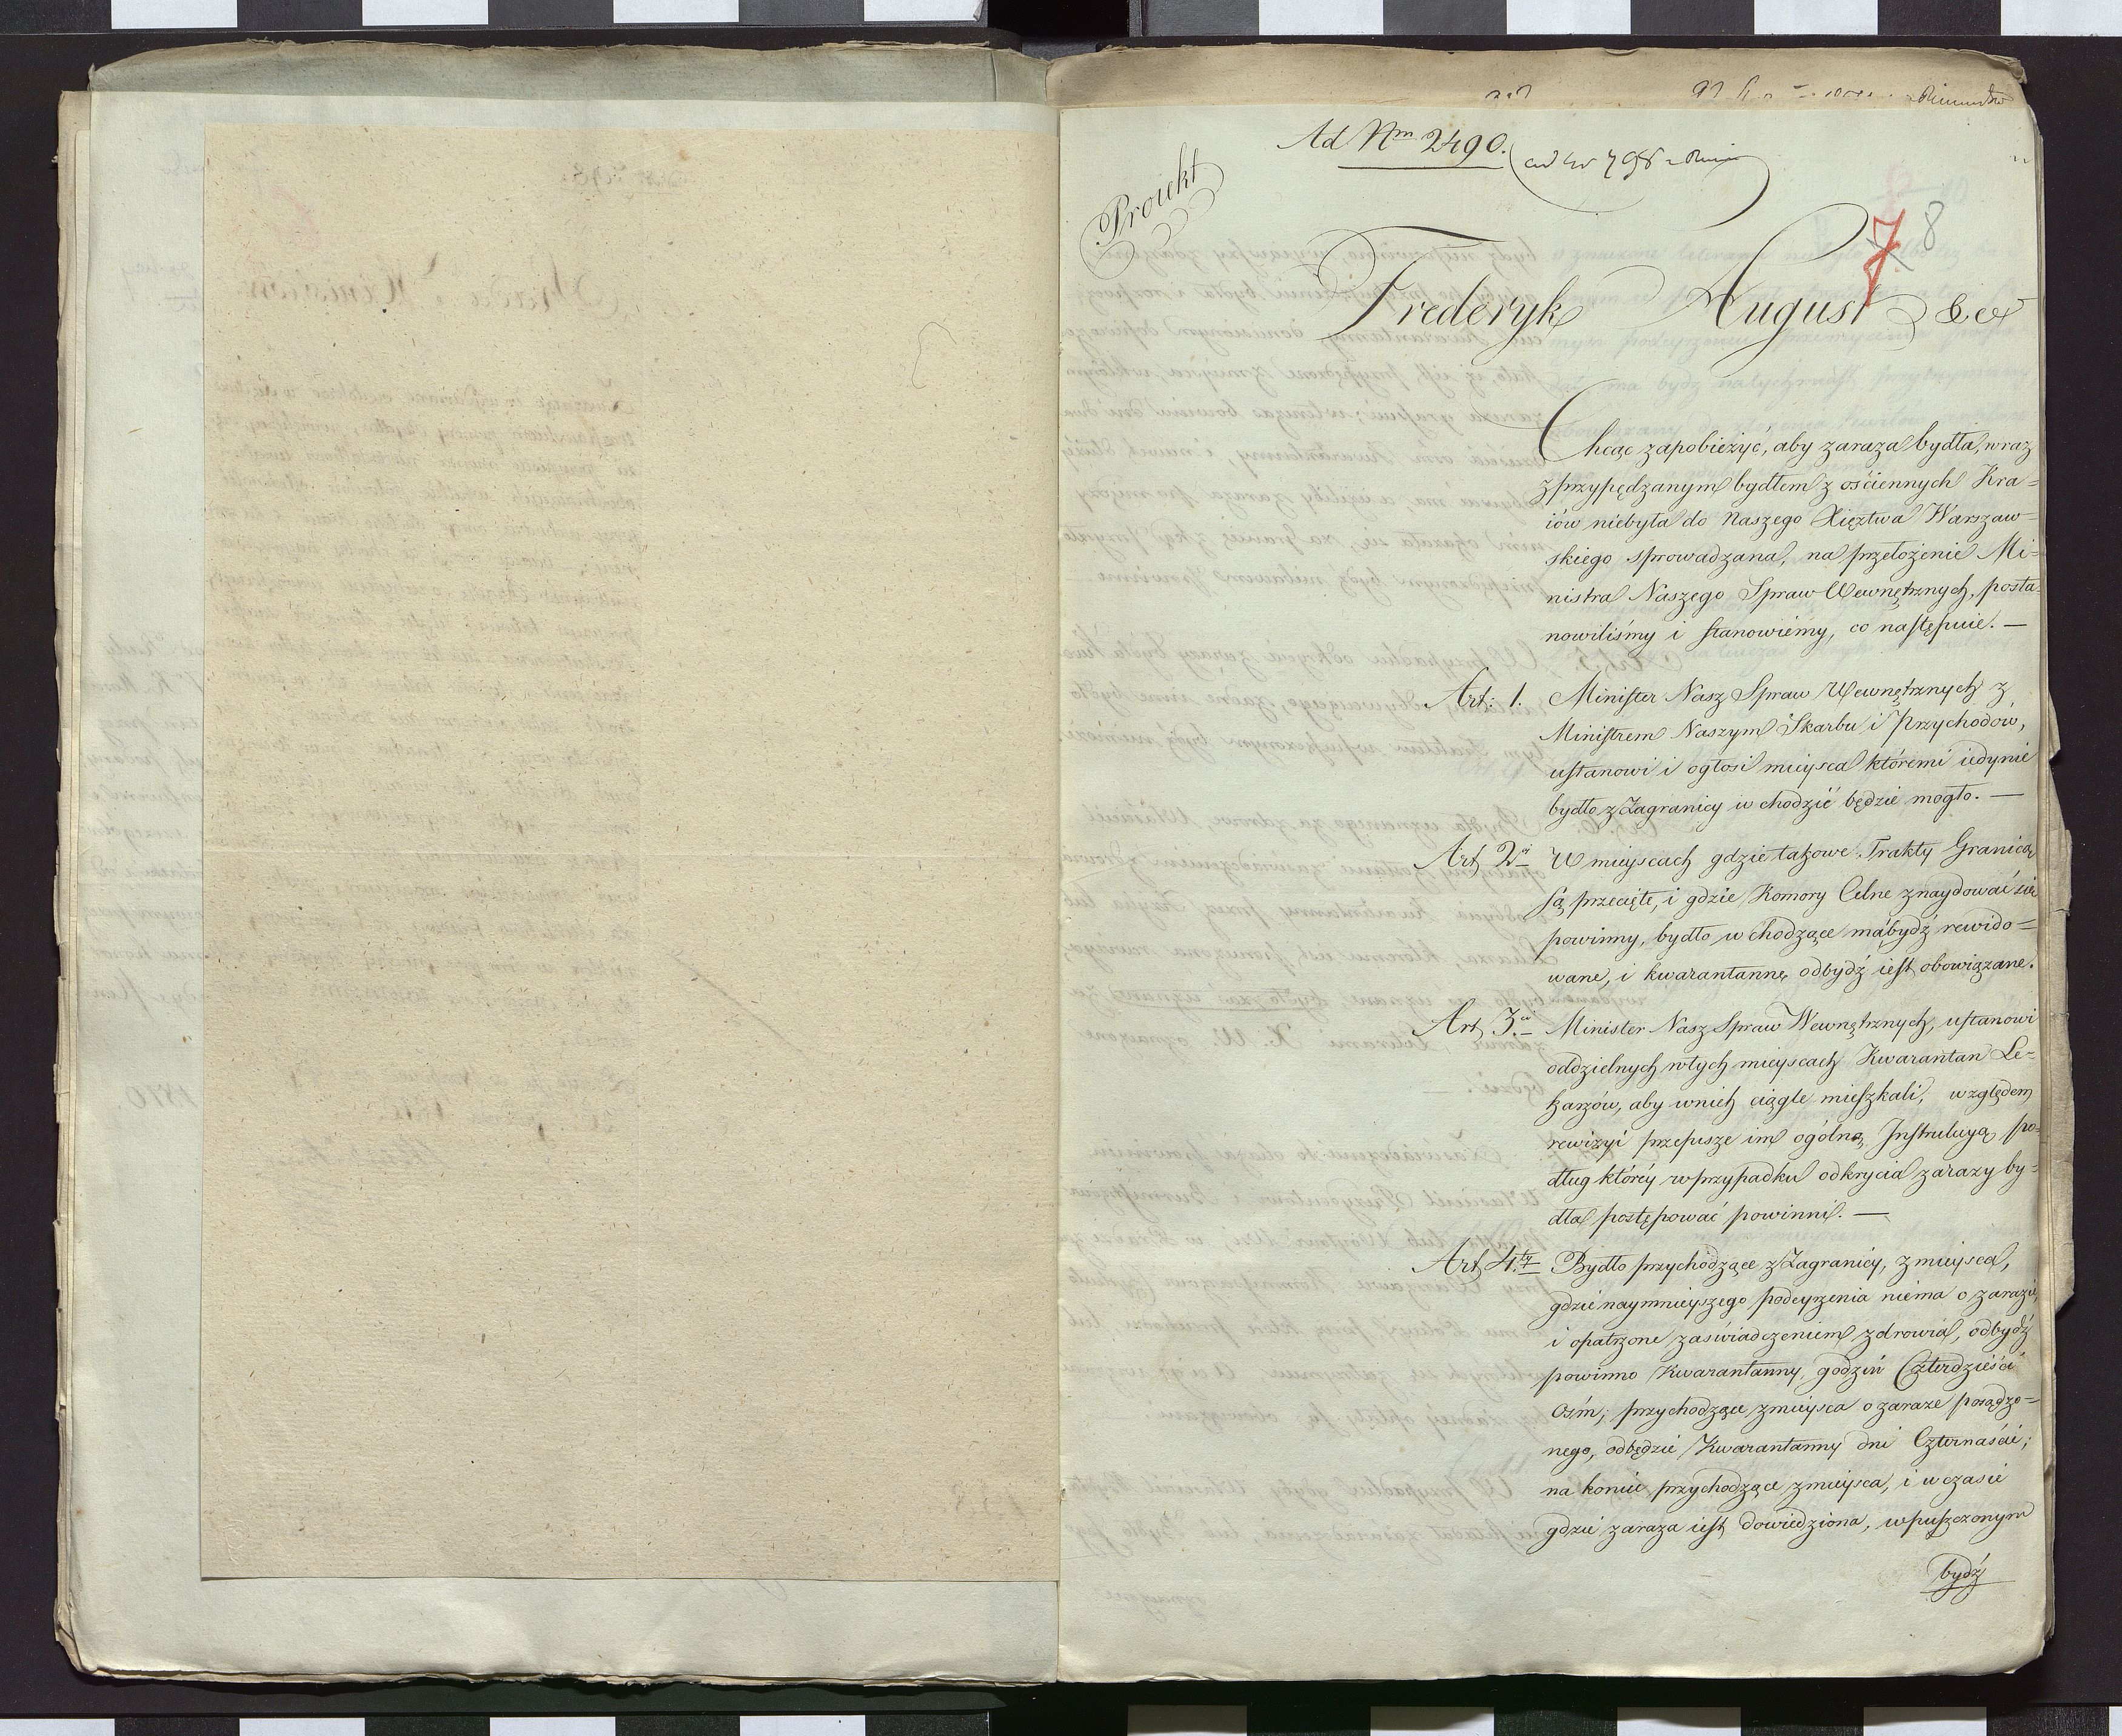 Ad Nrm 2490.
Proiekt
7 8
Frederyk August &c &c
Chcąc zapobieżyć, aby zaraza bydła, wraz
z przypędzanym bydłem z ościennych Kra=
iów niebyła do Naszego Xięztwa Warszaw=
skiego sprowadzana, na przełożenie Mi=
nistra Naszego Spraw Wewnętrznych, posta=
nowiliśmy i stanowiemy, co następuie. —
Art: 1. Minister Nasz Spraw Wewnętrznych z
Ministrem Naszym Skarbu i Przychodów,
ustanowi i ogłosi mieysca któremi iedynie
bydło z Zagranicy w chodzić będzie mogło. —
Art 2gi W mieyscach gdzie takowe Trakty Granicą
są przecięte, i gdzie Komory Celne znaydować się
powinny, bydło w chodzące má bydź rewido=
wane, i kwarantannę odbydź iest obowiązane.
Art 3ci Minister Nasz Spraw Wewnętrznych, ustanowi
oddzielnych w tych mieyscach Kwarantan Le=
karzów, aby w nich ciągle mieszkali, względem
rewizyi przepisze im ogólną Instrukcyą, po=
dług któréy w przypadku odkrycia zarazy by=
dła postępować powinni. —
Art 4ty Bydło przychodzące z Zagranicy, z mieysca,
gdzie naymnieyszego podeyrzenia niema o zarazie,
i opatrzone zaświadczeniem zdrowia, odbydź
powinno Kwarantanny, godzin Czterdzieści
Ośm; przychodzące z mieysca o zaraze posądzo=
nego, odbędzie Kwarantanny dni Czternaście;
na koniec przychodzące z mieysca, i w czasie
gdzie zaraza iest dowiedziona, wpuszczonym
bydź